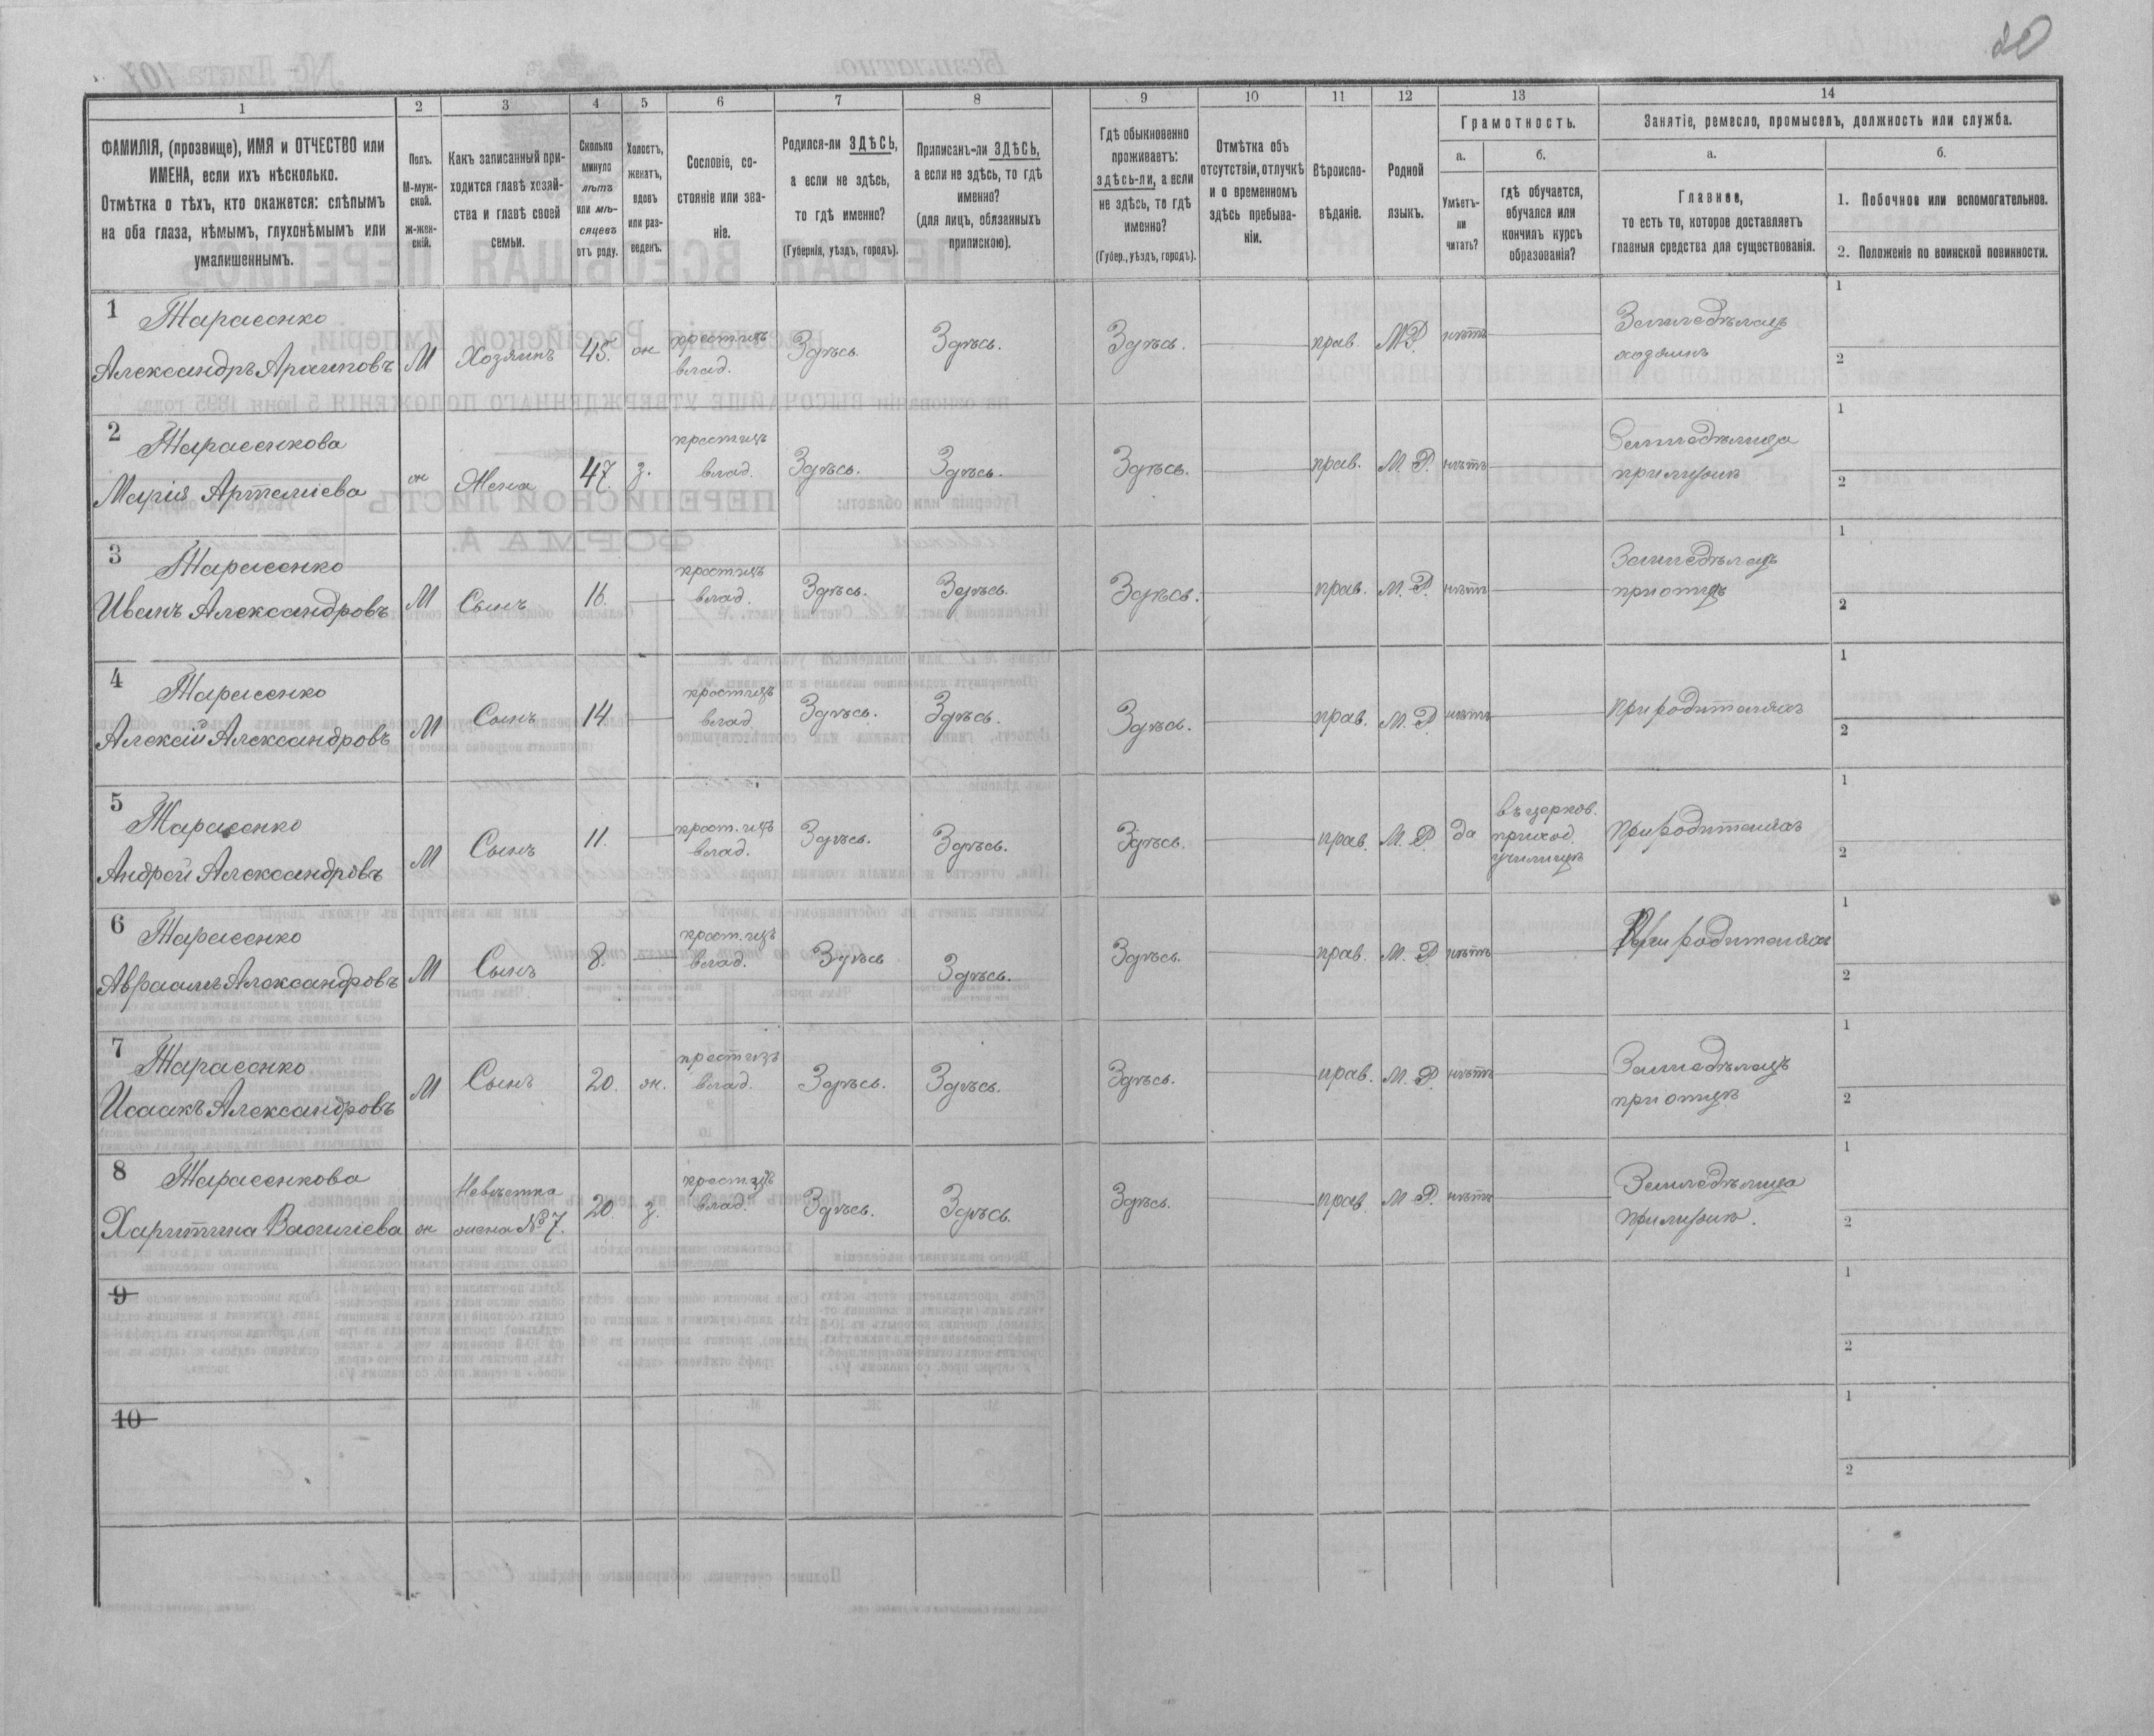 20
1 2 3 4 5 6 7 8 9 10 11 12 13 14
ФАМИЛІЯ, (прозвище), ИМЯ и ОТЧЕСТВО или
ИМЕНА, если ихъ нѣсколько.
Отмѣтка о тѣхъ, кто окажется: слѣпымъ
на оба глаза, нѣмымъ, глухонѣмымъ или
умалишеннымъ.
Полъ.
М-муж-
ской.
Ж-жен-
скій.
Какъ записанный при-
ходится главѣ хозяй-
ства и главѣ своей
семьи.
Сколько
минуло
лѣтъ
или мѣ-
сяцевъ
отъ роду.
Холостъ,
женатъ,
вдовъ
или раз-
веденъ.
Сословіе, со-
стояніе или зва-
ніе.
Родился-ли ЗДѢСЬ,
а если не здѣсь,
то гдѣ именно?
(Губернія, уѣздъ, городъ).
Приписанъ-ли ЗДѢСЬ,
а если не здѣсь, то гдѣ
именно?
(для лицъ, обязанныхъ
припискою).
Гдѣ обыкновенно
проживаетъ:
здѣсь-ли, а если
не здѣсь, то гдѣ
именно?
(Губер., уѣздъ, городъ).
Отмѣтка объ
отсутствіи, отлучкѣ
и о временномъ
здѣсь пребыва-
ніи.
Вѣроиспо-
вѣданіе.
Родной
языкъ.
Грамотность.
а.
Умѣетъ-
ли
читать?
б.
гдѣ обучается,
обучался или
кончилъ курсъ
образованія?
Занятіе, ремесло, промыселъ, должность или служба.
а.
Главное,
то есть то, которое доставляетъ
главныя средства для существованія.
б.
1. Побочное или вспомогательное.
2. Положеніе по воинской повинности.
1 Тарасенко
Александръ Архиповъ М Хозяинъ 45. ж крест. изъ
влад. Здѣсь Здѣсь. Здѣсь. прав. М.Р. нѣтъ Земледѣлецъ
хозяинъ
1
2
2 Тарасенкова
Марія Артеміева ж Жена 47 з. крест изъ
влад. Здѣсь. Здѣсь. Здѣсь. прав. М. Р. нѣтъ Земледѣлица
при мужѣ
1
2
3 Тарасенко
Иванъ Александровъ М Сынъ 16. крест изъ
влад. Здѣсь. Здѣсь. Здѣсь. прав. М. Р. нѣтъ Земледѣлецъ
при отцѣ
1
2
4 Тарасенко
Алексѣй Александровъ М Сынъ 14 крест изъ
влад. Здѣсь. Здѣсь. Здѣсь. прав. М. Р. нѣтъ при родителяхъ
1
2
5 Тарасенко
Андрей Александровъ М Сынъ 11. крест. изъ
влад. Здѣсь. Здѣсь. Здѣсь. прав. М. Р. да въ церков.
приход.
училищѣ
при родителяхъ
1
2
6 Тарасенко
Авраамъ Александровъ М Сынъ 8. крест. изъ
влад. Здѣсь Здѣсь. Здѣсь. прав. М. Р. нѣтъ При родителяхъ
1
2
7 Тарасенко
Исаакъ Александровъ М Сынъ 20. ж. крест изъ
влад. Здѣсь. Здѣсь. Здѣсь. прав. М. Р. нѣтъ Земледѣлецъ
при отцѣ
1
2
8 Тарасенкова
Харитина Васильева ж Невѣстка
жена № 7. 20. з. крест изъ
влад. Здѣсь. Здѣсь. Здѣсь. прав. М. Р. нѣтъ Земледѣлица
при мужѣ.
1
2
9
1
2
10
1
2